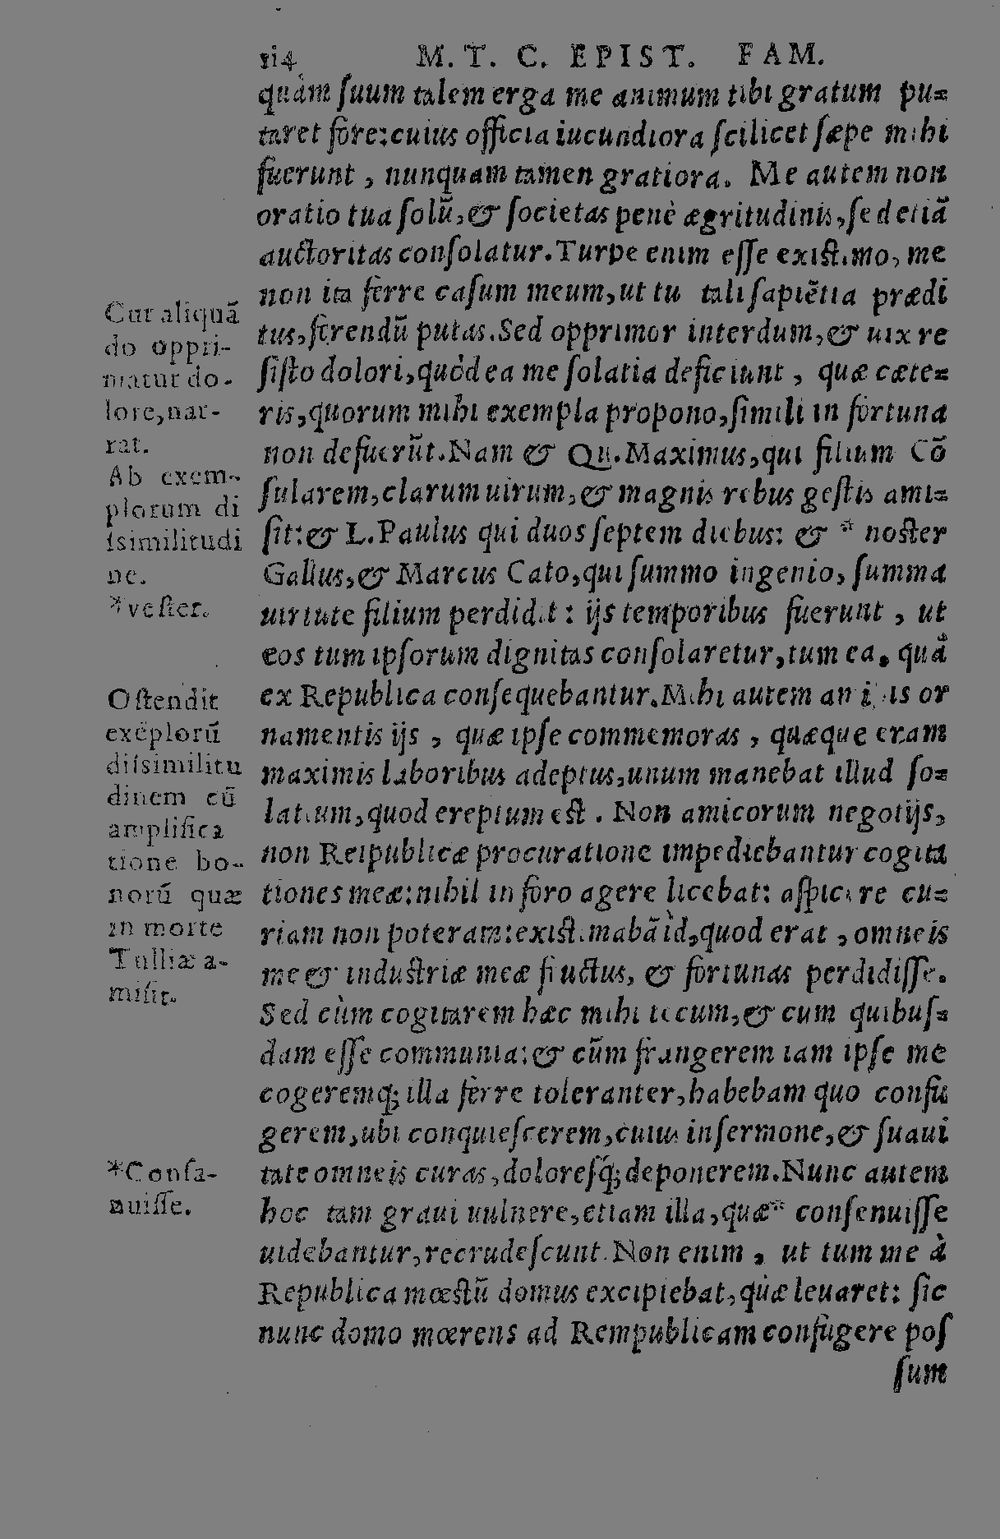 114 M. T. C. EPIST. FAM.
quàm ſuum talem erga me animum tibi gratum pu=
taret fore:cuius officia iucundiora ſcilicet ſæpe mihi
fuerunt , nunquam tamen gratiora. Me autem non
oratio tua ſolũ,& ſocietas penè ægritudinis,ſed etiã
auctoritas conſolatur.Turpe enim eſſe existimo, me
non ita ferre caſum meum,ut tu tali ſapiẽtia prædi
tus,ferendũ putas.Sed opprimor interdum,& uix re
ſiſto dolori,quòd ea me ſolatia deficiunt , quæ cæte=
ris,quorum mihi exempla propono,ſimili in fortuna
non defuerũt.Nam & Qu.Maximus,qui filium Cõ
ſularem,clarum uirum,& magnis rebus geſtis ami=
ſit:& L.Paulus qui duos ſeptem diebus: & * noſter
Gallus,& Marcus Cato,qui ſummo ingenio, ſumma
uirtute filium perdidit : ijs temporibus fuerunt , ut
eos tum ipſorum dignitas conſolaretur,tum ea, quã
ex Republica conſequebantur.Mihi autem or
namentis ijs , quæ ipſe commemoras , quæque eram
maximis laboribus adeptus,unum manebat illud ſo=
latium,quod ereptum eſt . Non amicorum negotijs,
non Reipublicæ procuratione impediebantur cogita
tiones meæ:nihil in foro agere licebat: aſpicere cu=
riam non poteram:existimabã id,quod erat , omneis
me & induſtriæ meæ fructus, & fortunas perdidiſſe.
Sed cùm cogitarem hæc mihi tecum,& cum quibuſ=
dam eſſe communia:& cũm frangerem iam ipſe me
cogeremq; illa ferre toleranter,habebam quo confu
gerem,ubi conquieſcerem,cuius in ſermone,& ſuaui
tate omneis curas,doloreſq́; deponerem.Nunc autem
hoc tam graui uulnere,etiam illa,quæ* conſenuiſſe
uidebantur,recrudeſcunt.Non enim , ut tum me à
Republica mœſtũ domus excipiebat,quæ leuaret: ſic
nunc domo mœrens ad Rempublicam confugere poſ
ſum
Cur aliquã
do oppri-
matur do-
lore,nar-
rat.
Ab exem-
plorum di
ſsimilitudi
ne.
*veſter.
Oſtendit
exẽplorũ
diſsimilitu
dinem cũ
amplifica
tione bo-
norũ quæ
in morte
Tulliæ a-
miſit.
*Conſa-
nuiſſe.